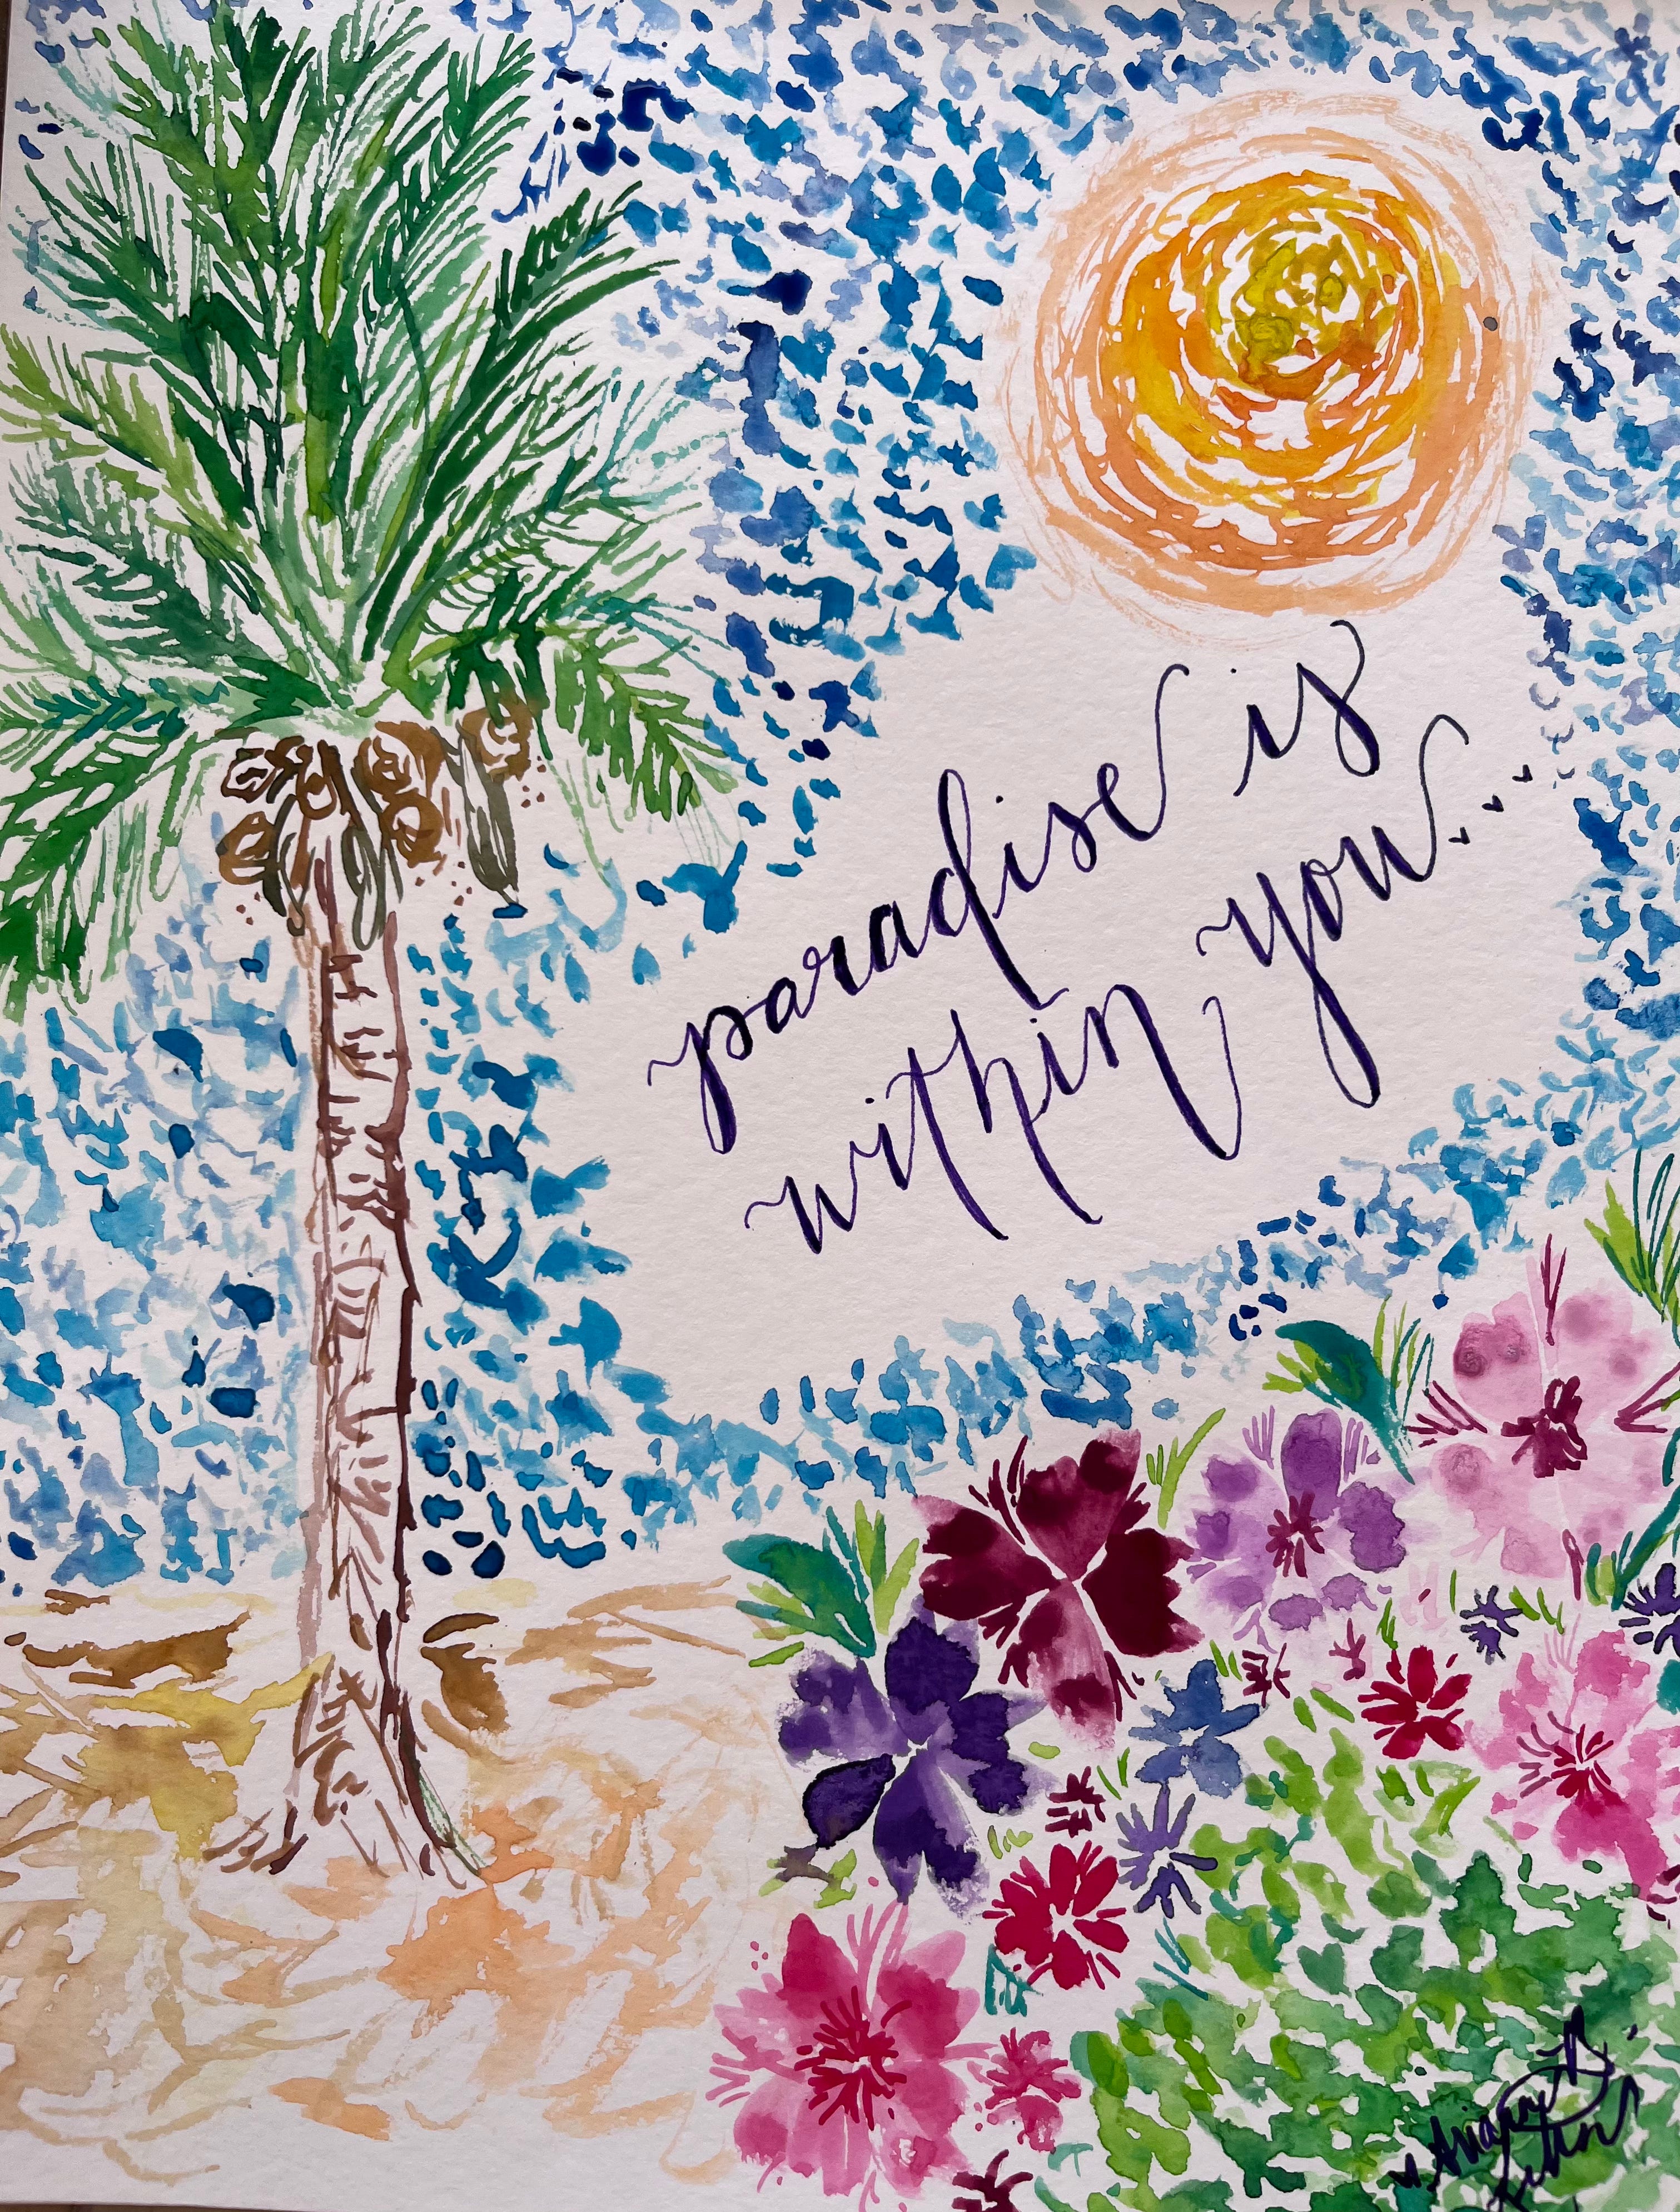 paradise is
within you...